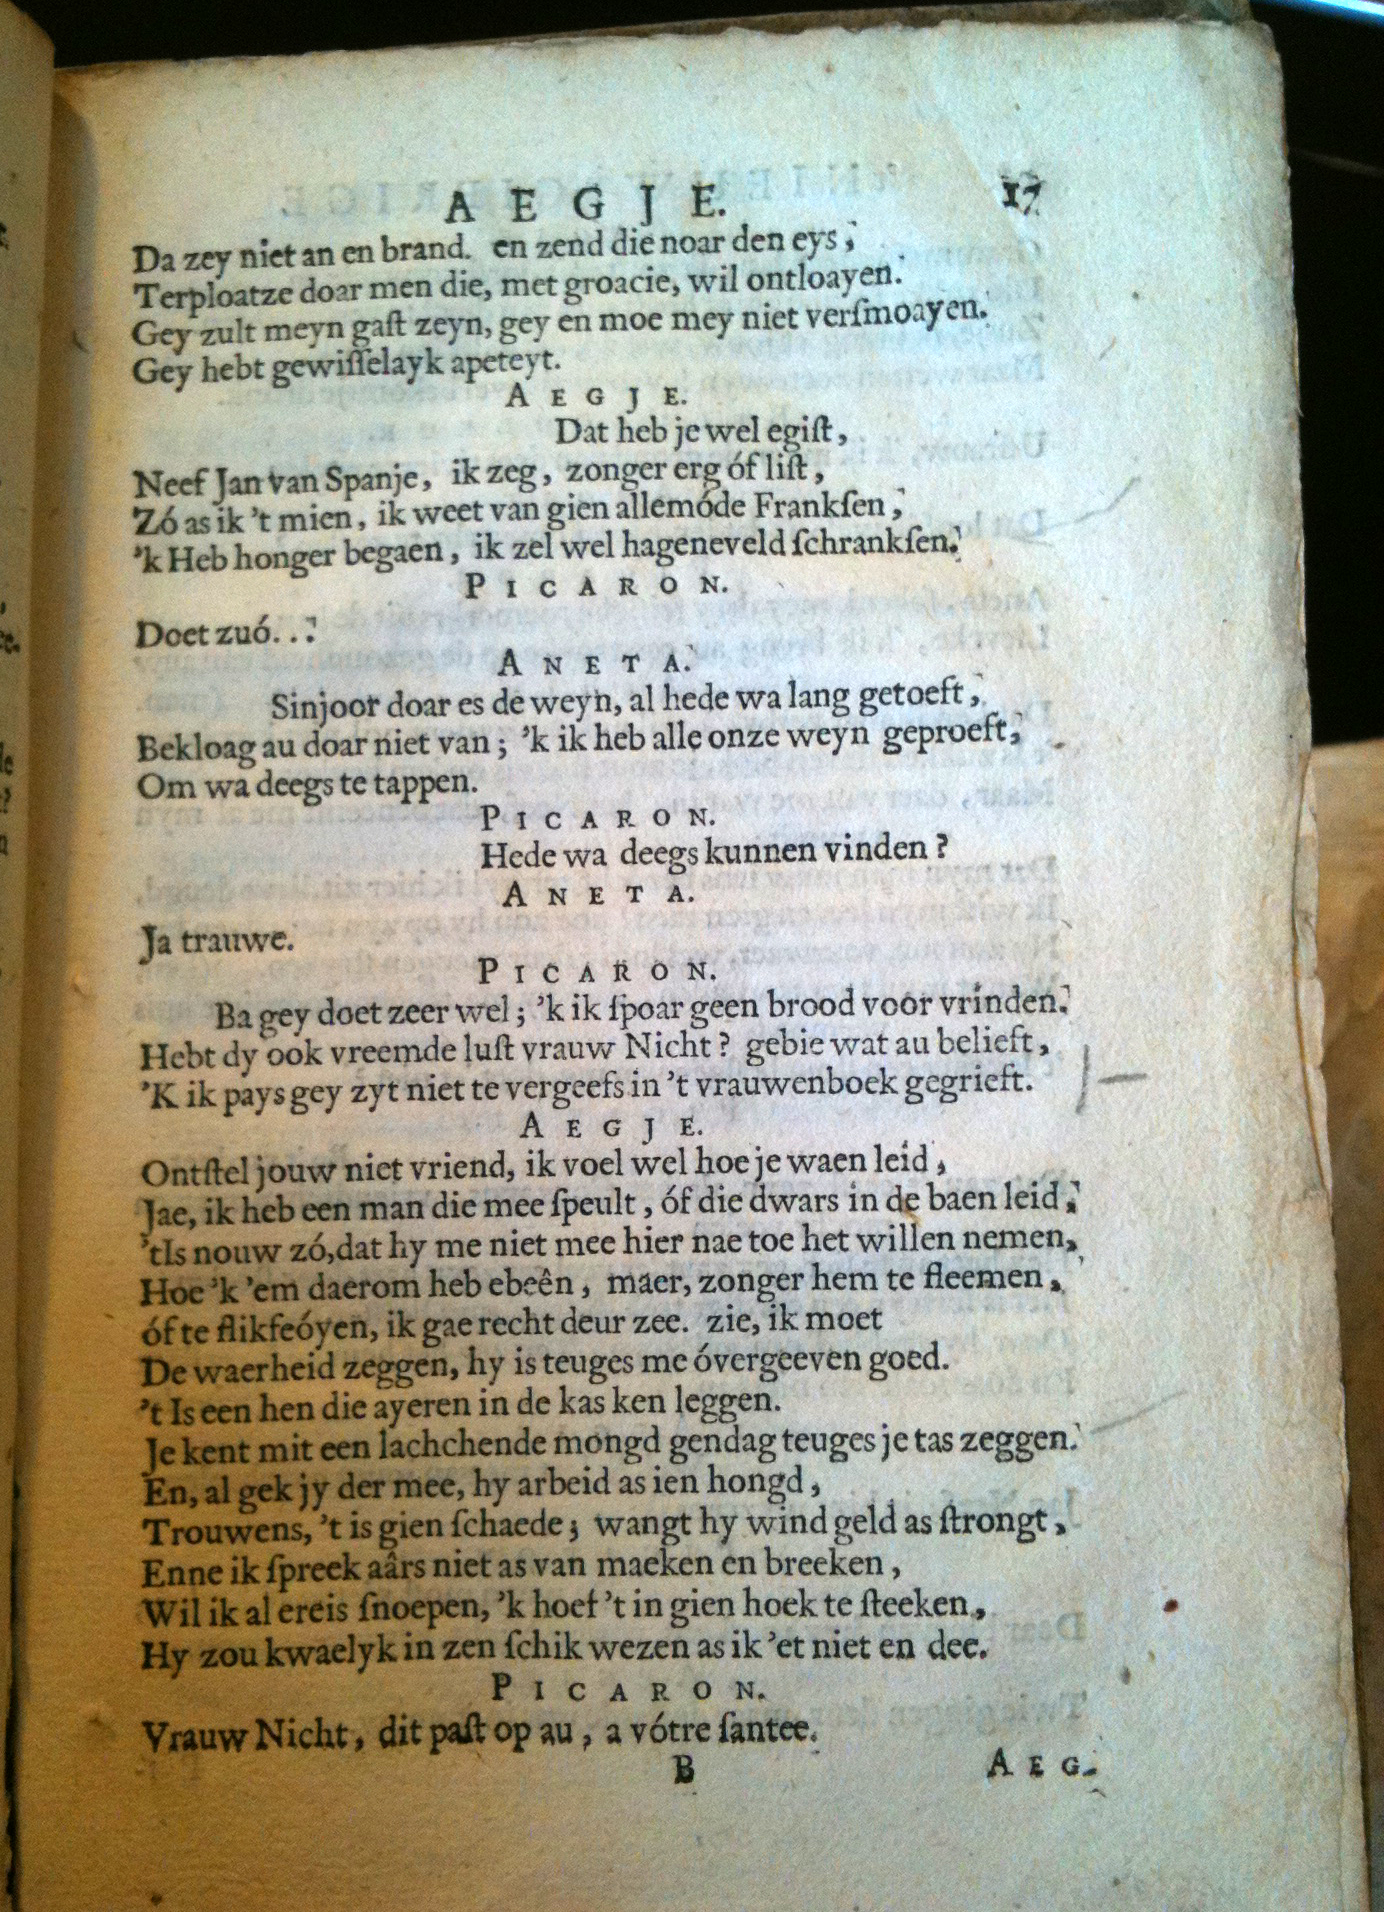 AEGJE. 17
Da zey niet an en brand. en zend die noar den eys;
Terploatze doar men die, met groacie, wil ontloayen.
Gey zult meyn gaſt zeyn, gey en moe mey niet verſmoayen.
Gey hebt gewiſſelayk apeteyt.
AEGJE.
Dat heb je wel egiſt,
Neef Jan van Spanje, ik zeg, zonger erg óf liſt,
Zó as ik 't mien, ik weet van gien allemóde Frankſen,
'k Heb honger begaen, ik zel wel hageneveld ſchrankſen.
PICARON.
Doet zuó...
ANETA.
Sinjoor doar es de weyn, al hede wa lang getoeft,
Bekloag au doar niet van; 'k ik heb alle onze weyn geproeft,
Om wa deegs te tappen.
PICARON.
Hede wa deegs kunnen vinden?
ANETA.
Ja trauwe.
PICARON.
Ba gey doet zeer wel; 'k ik ſpoar geen brood voor vrinden.
Hebt dy ook vreemde luſt vrauw Nicht? gebie wat au belieft,
'K ik pays gey zyt niet te vergeefs in 't vrauwenboek gegrieft.
AEGJE.
Ontſtel jouw niet vriend, ik voel wel hoe je waen leid,
Jae, ik heb een man die mee ſpeult, óf die dwars in de baen leid;
'tIs nouw zó, dat hy me niet mee hier nae toe het willen nemen,
Hoe 'k 'em daerom heb ebeên, maer, zonger hem te fleemen,
óf te flikfeóyen, ik gae recht deur zee. zie, ik moet
De waerheid zeggen, hy is teuges me óvergeeven goed.
't Is een hen die ayeren in de kas ken leggen.
Je kent mit een lachchende mongd gendag teuges je tas zeggen.
En, al gek jy der mee, hy arbeid as ien hongd,
Trouwens, 't is gien ſchaede; wangt hy wind geld as ſtrongt,
Enne ik ſpreek aârs niet as van maeken en breeken,
Wil ik al ereis ſnoepen, 'k hoef 't in gien hoek te ſteeken,
Hy zou kwaelyk in zen ſchik wezen as ik 'et niet en dee.
PICARON.
Vrauw Nicht, dit paſt op au, a vótre ſantee.
B AEG.